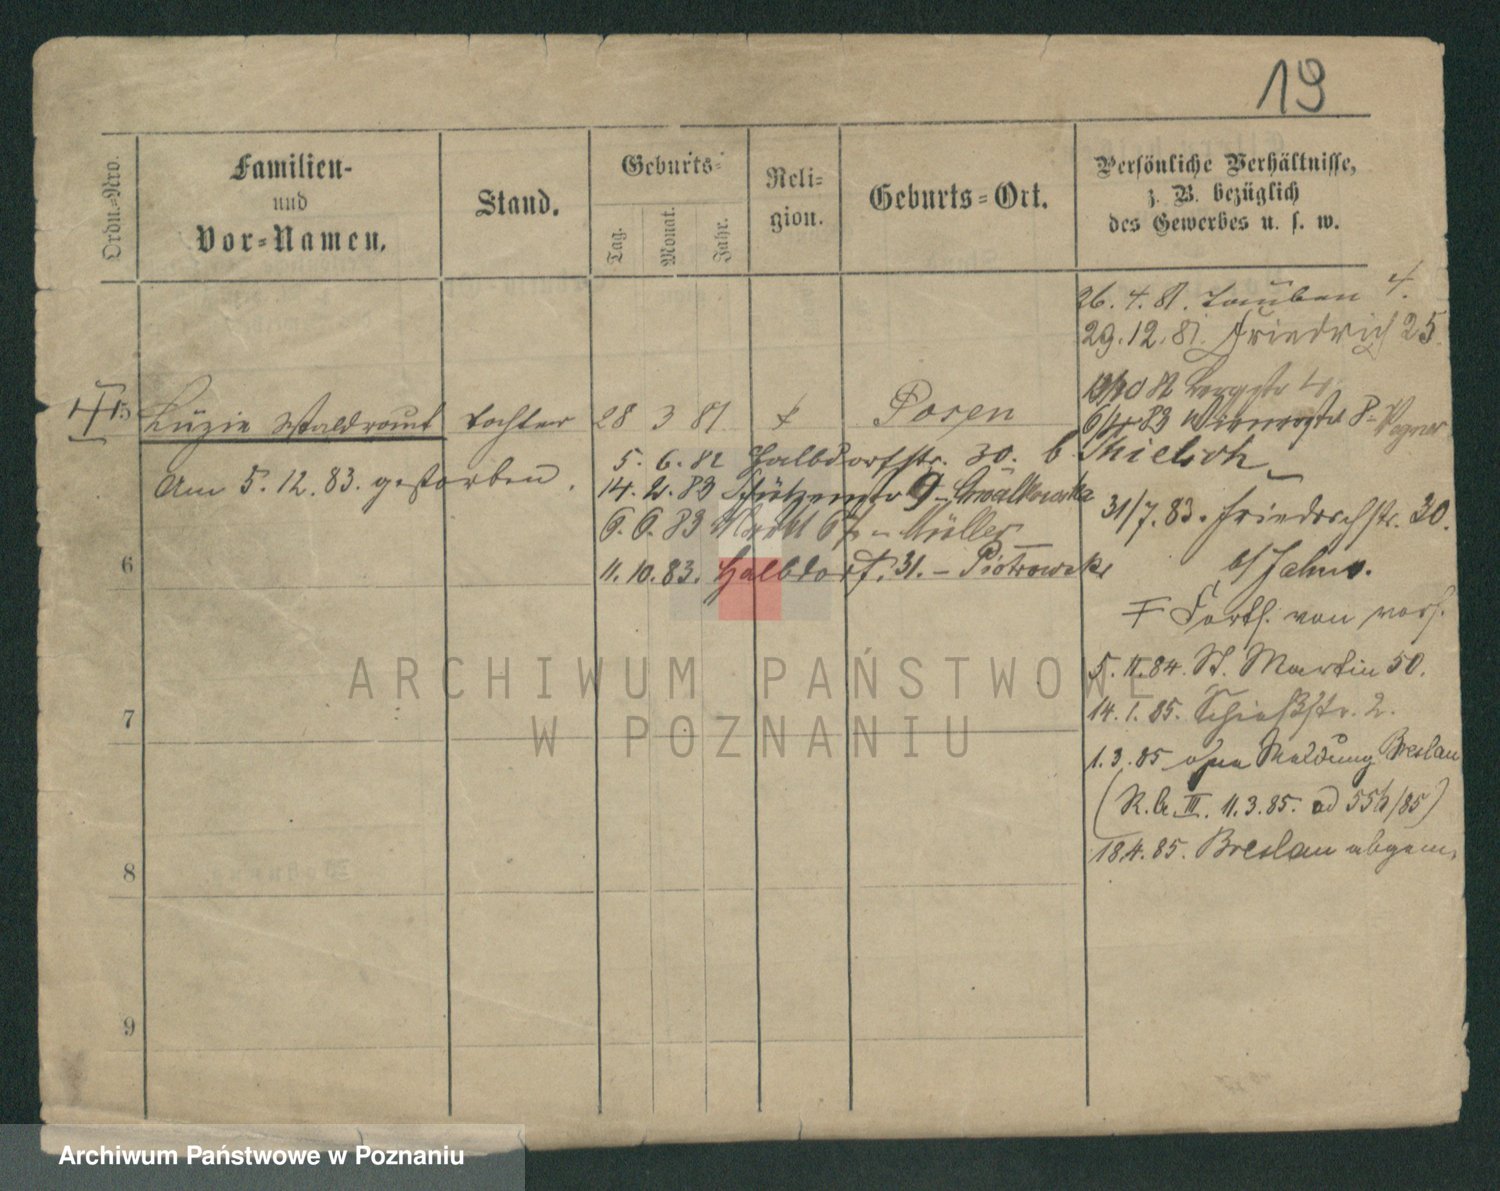 19
Ordn.-Nro.
Familien-
und
Vor-Namen.
Stand.
Geburts-
Tag.
Monat.
Jahr.
Reli-
gion.
Geburts-Ort.
Persönliche Verhältnisse,
z. B. bezüglich
des Gewerbes u. s. w.
26. 4. 81. Tauben 4.
29. 12. 81. Friedrich 25.
82 Bergstr 4
5 Luzie Waldraut Tochter 28 3 81 Posen
6/4 83 Wienerstr 8 - Wagner
5. 6. 82 Halbdorfstr. 30. b. Thielsch
Am 5. 12. 83. gestorben.
14. 2. 83 Schützenstr 9 -
31/7. 83. Friedrichstr. 30.
6. 6. 83 Markt - Müller
6
11. 10. 83. Halbdorf. 31. - Piotrowski
b/ Jahns.
Forts. von vorh.
5. II. 84. St. Martin 50.
7
14. 1. 85. Schießstr. 2.
1. 3. 85 ohne Meldung Breslau
(R. b. III. 11. 3. 85. 85)
18 4. 85. Breslau abgem.
8
9
ARCHIWUM PAŃSTWOWE
W POZNANIU
Archiwum Państwowe w Poznaniu